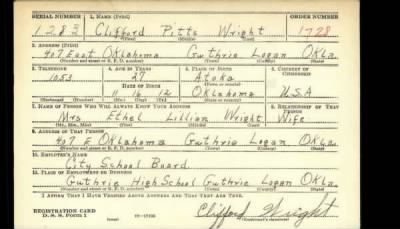 SERIAL NUMBER 1. NAME (Print) ORDER NUMBER
1283 Clifford Pitts Wright 1728
(First) (Middle) (Last)
2. ADDRESS (Print)
907 East Oklahoma Guthrie Logan Okla.
(Number and street or R. F. D. number) (Town) (County) (State)
3. TELEPHONE 4. AGE IN YEARS 5. PLACE OF BIRTH 6. COUNTRY OF CITIZENSHIP
1053 27 Atoka
DATE OF BIRTH (Town or county)
11 16 12 Oklahoma U.S.A
(Exchange) (Number) (Mo.) (Day) (Yr.) (State or country)
7. NAME OF PERSON WHO WILL ALWAYS KNOW YOUR ADDRESS 8. RELATIONSHIP OF THAT PERSON
Mrs Ethel Lillian Wright Wife
(Mr., Mrs., Miss) (First) (Middle) (Last)
9. ADDRESS OF THAT PERSON
907 E Oklahoma Guthrie Logan Okla.
(Number and street or R. F. D. number) (Town) (County) (State)
10. EMPLOYER'S NAME
City School Board
11. PLACE OF EMPLOYMENT OR BUSINESS
Guthrie High School Guthrie Logan Okla.
(Number and street or R. F. D. number) (Town) (County) (State)
I AFFIRM THAT I HAVE VERIFIED ABOVE ANSWERS AND THAT THEY ARE TRUE.
REGISTRATION CARD
D. S. S. FORM 1
Clifford Wright
(Registrant's signature)